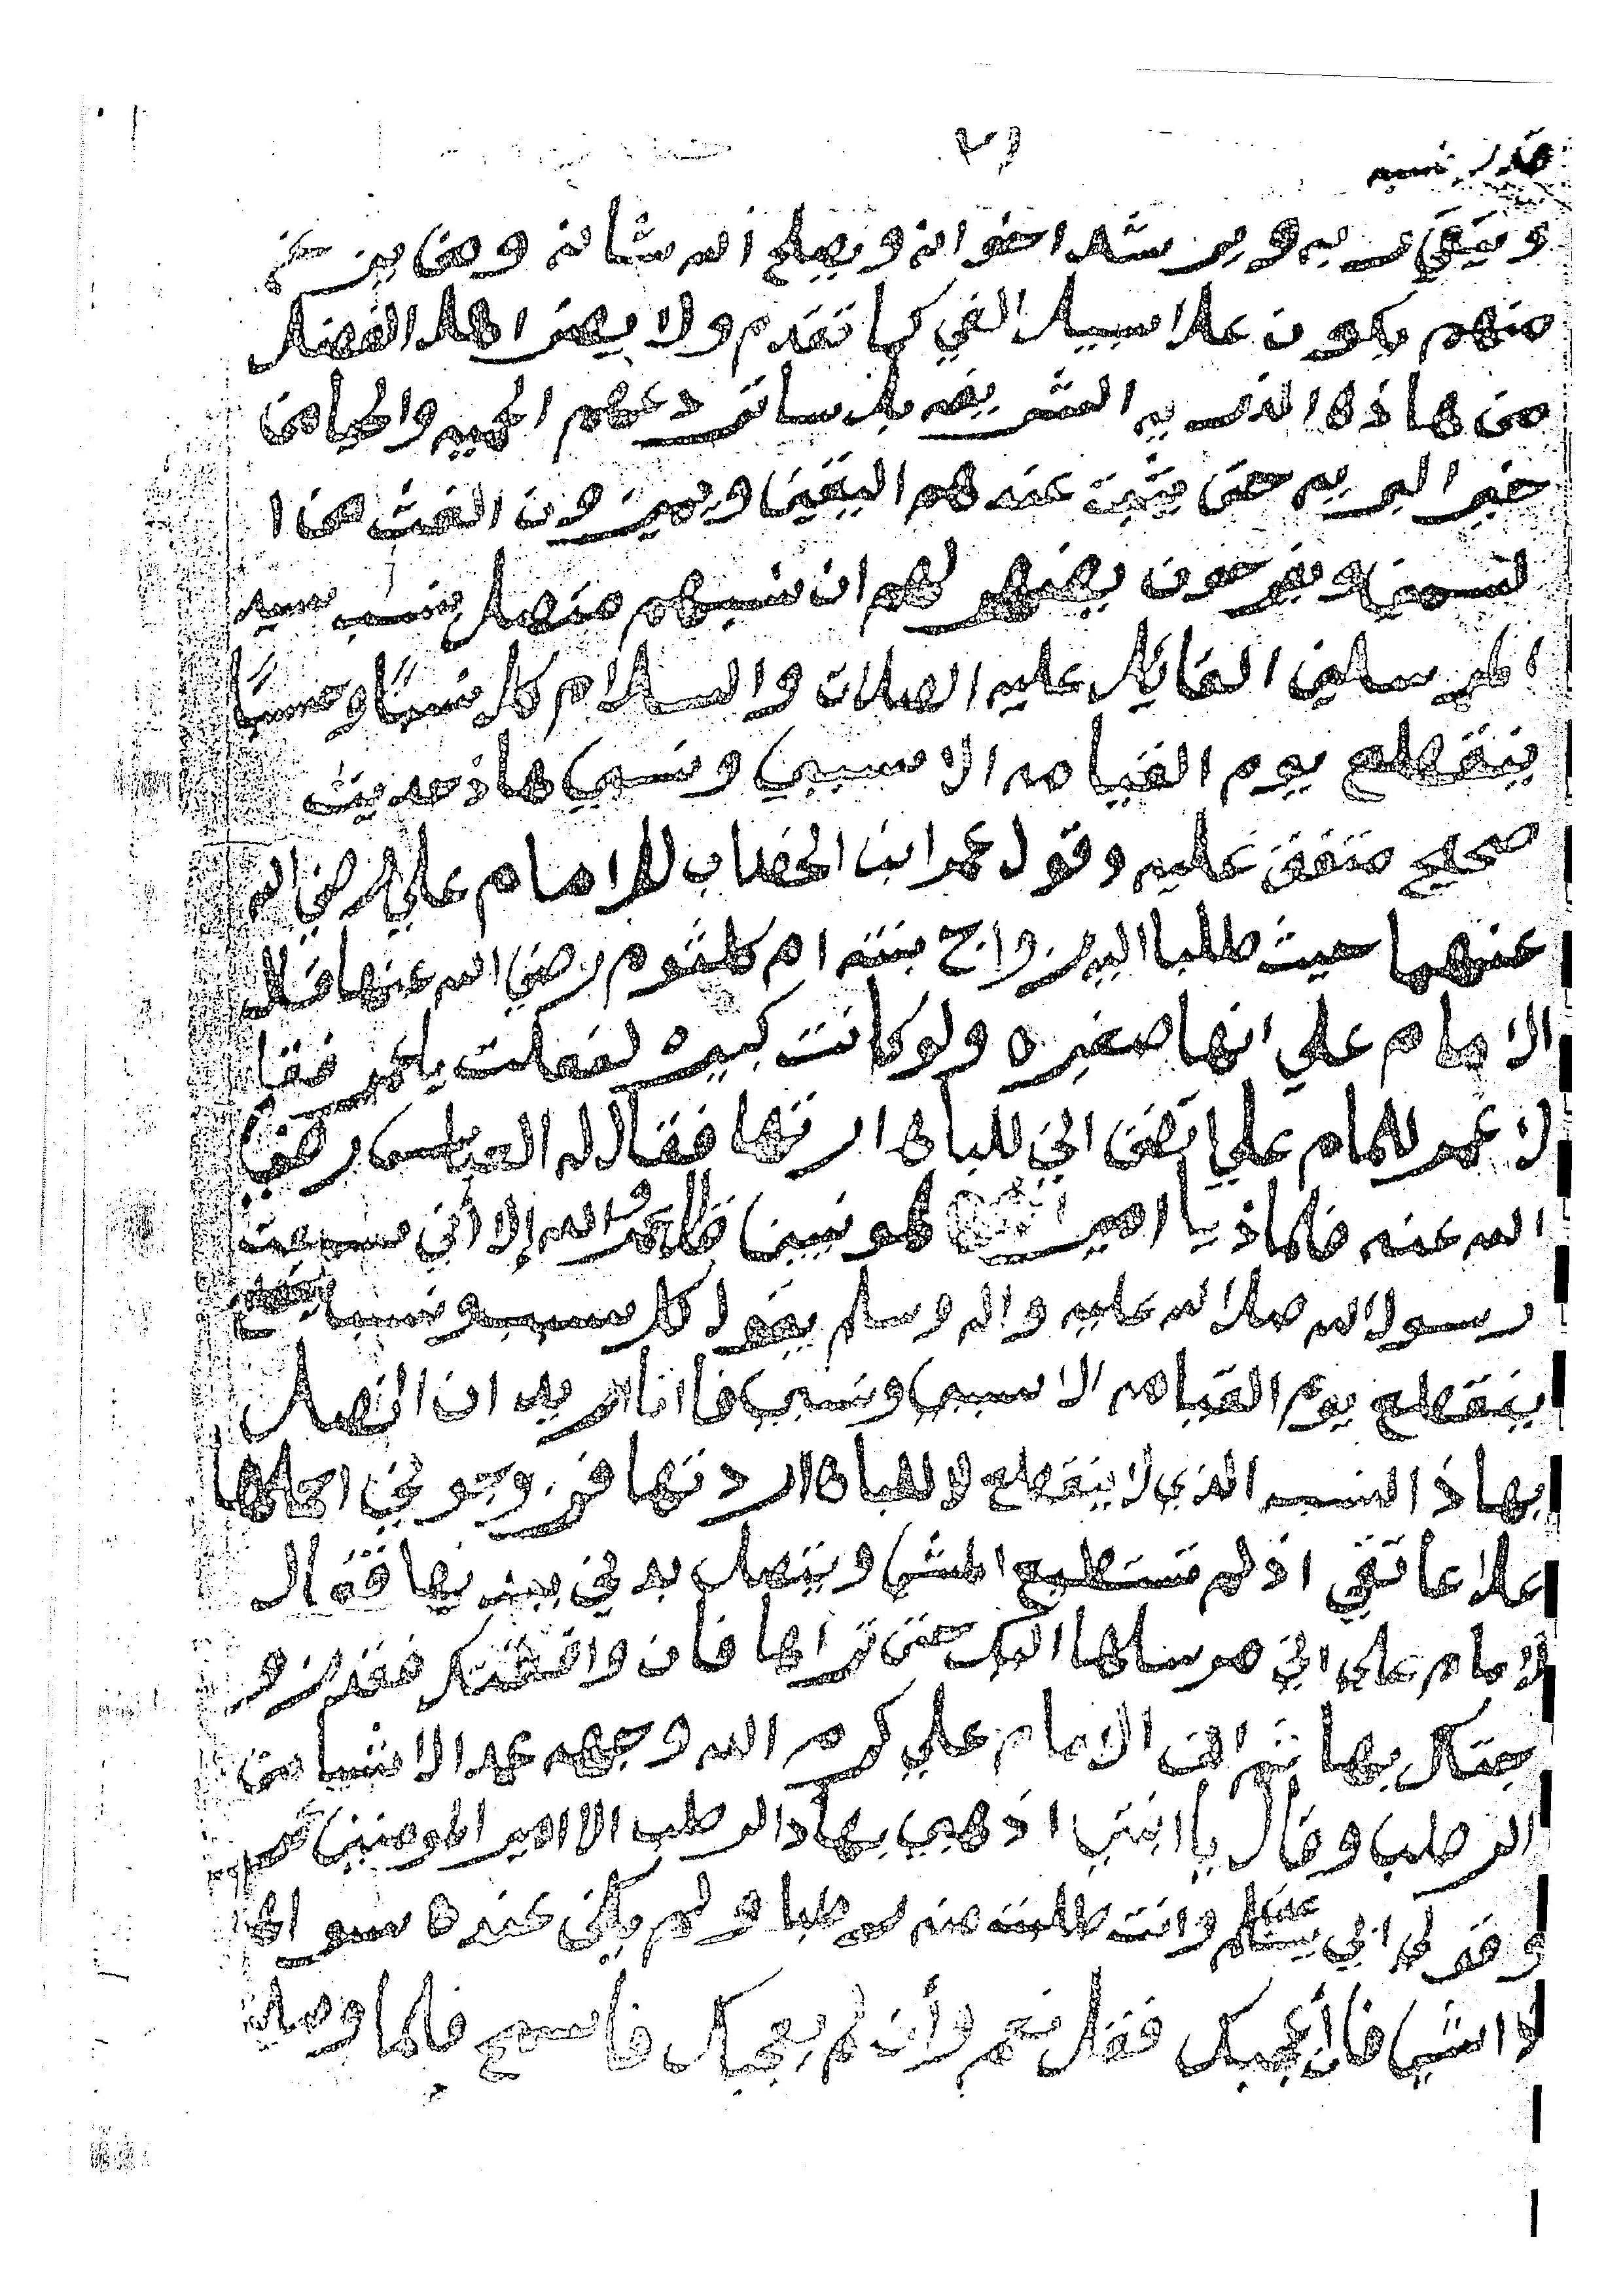 ٢١
قدر نسبه
ويتقي ربه ويرشد اخوانه ويصلح الله شانه ومن يزعم
منهم يكون علا سبيل الغي كما تقدم ولا يضر اهل الفضل
من هاذه الذريه الشريفه بل ساتردعهم الحميه والحيا من
خير البريه حتى يثبت عندهم اليقين ويميزون الغث من ا
لسمين ويفرحون بضهور لهم ان نسبهم متصل بنسب سيد
المرسلين القايل عليه الصلات والسلام كل نسبًا وحسبًا
ينقطع يوم القيامه الا سببي ونسبي هاذ حديث
صحيح متفق عليه وقول عمر ابن الخطاب للامام علي رضي الله
عنهما حيث طلبا اليه زواج بنته ام كلثوم رضي الله عنها قال
الامام علي انها صغيره ولو كانت كبيره لفعلت يا عمر فقا
ل عمر للامام علي اتضن اني للباه اردتها فقال له العباس رضي
الله عنه فلماذ يا امير المونين قال عمر والله إلا أني سمعت
رسول الله صلا الله عليه واله وسلم يقول كل سبب ونسبا
ينقطع يوم القيامه الا سببي ونسبي فانا اريد ان اتصل
بهاذ النسب الذي لا ينقطع لا للباه اردتها فزوجوني احملها
علا عاتقي اذ لم تستطيع المشي ويتصل بدني ببدنها فقال ا
لامام علي اني مرسلها اليك حتى تراها فان وافقتك فقد زو
جتك بها ثم ان الامام علي كرم الله وجهه عمد الا شيا من
الرطب وقال يا ابنتي اذهبي بهاذ الرطب الا امير المومنين عمر
وقولي ابي يسلم عليك وانت طلبت منه رطبا ولم يكن عنده سوا ها
ذا الشي فان أعجبك فقل نعم وأن لم يعجبك فاسمح فلما وصلت